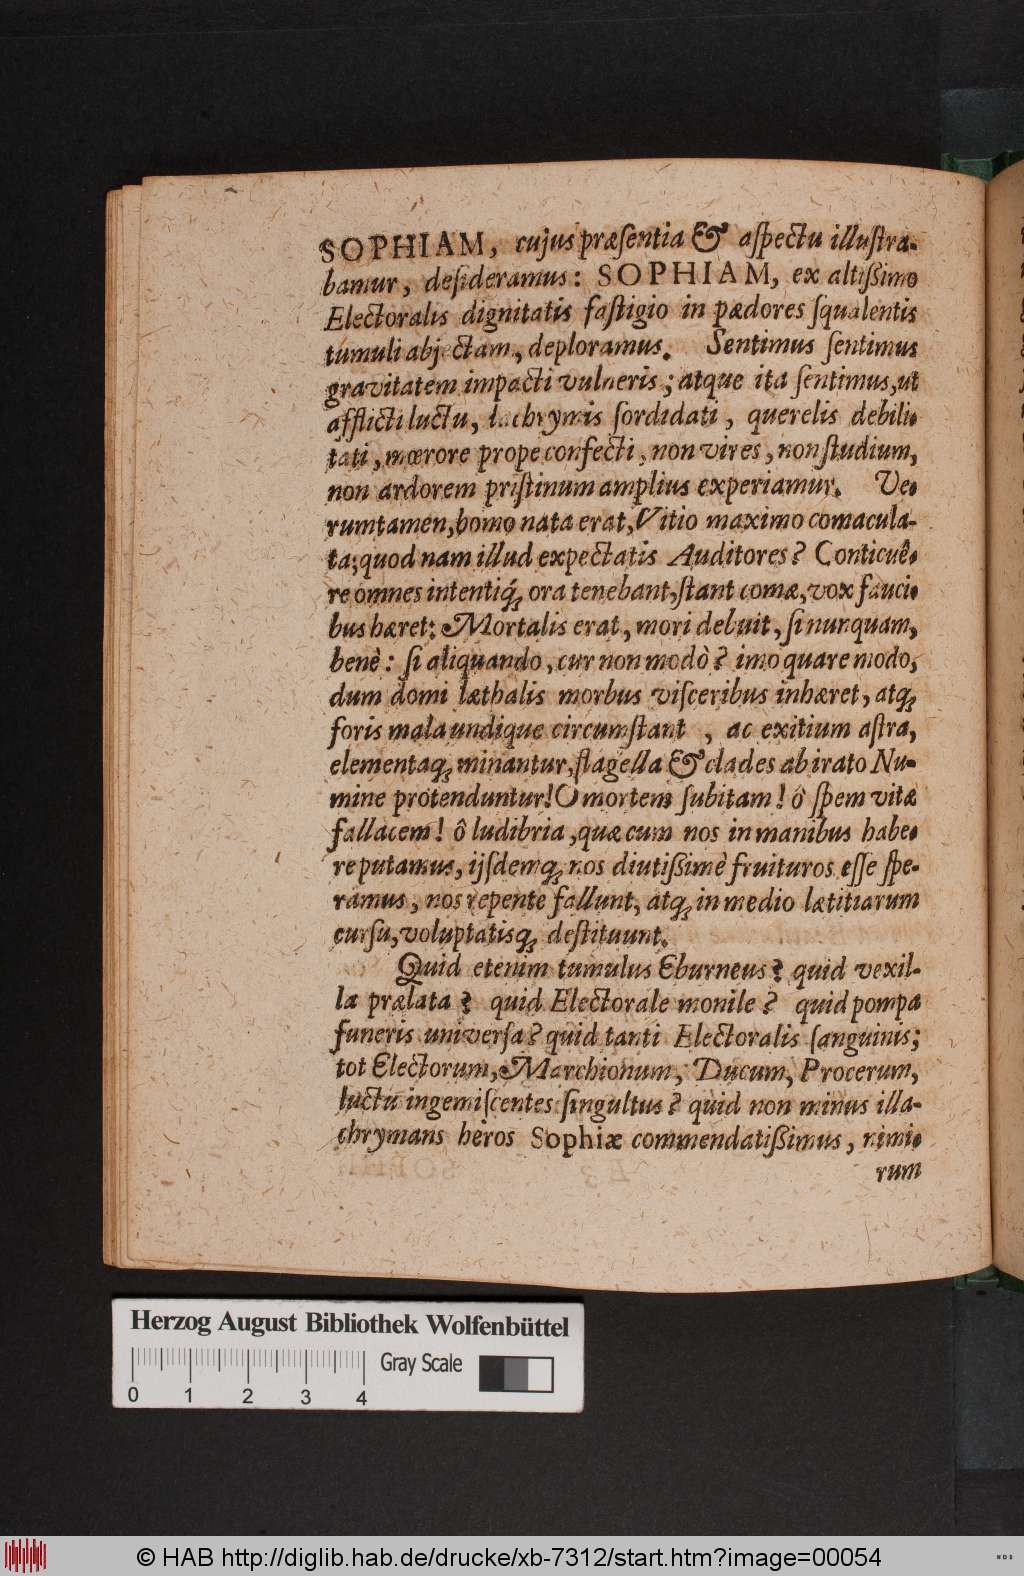 SOPHIAM, cujus præſentia & aſpectu illuſtra-
bamur, deſideramus: SOPHIAM, ex altiſſimo
Electoralis dignitatis faſtigio in pædores ſqualentis
tumuli abjectam, deploramus. Sentimus ſentimus
gravitatem impacti vulneris; atque ita ſentimus, ut
afflicti luctu, lachrymis ſordidati, querelis debili-
tati, mœrore prope confecti, non vires, non ſtudium,
non ardorem priſtinum amplius experiamur. Ve-
rumtamen, homo nata erat, Vitio maximo comacula-
ta; quod nam illud expectatis Auditores? Conticuê-
re omnes intentiq́; ora tenebant, ſtant comæ, vox fauci-
bus hæret: Mortalis erat, mori debuit, ſi nunquam,
benè: ſi aliquando, cur non modò? imo quare modo,
dum domi læthalis morbus viſceribus inhæret, atq;
foris mala undique circumſtant, ac exitium aſtra,
elementaq; minantur, flagella & clades ab irato Nu-
mine protenduntur! O mortem ſubitam! ô ſpem vitæ
fallacem! ô ludibria, quæ cum nos in manibus habe-
re putamus, ijſdemq; nos diutiſſimè fruituros eſſe ſpe-
ramus, nos repente fallunt, atq; in medio lætitiarum
curſu, voluptatisq; deſtituunt.
Quid etenim tumulus Eburneus? quid vexil-
la prælata? quid Electorale monile? quid pompa
funeris univerſa? quid tanti Electoralis ſanguinis;
tot Electorum, Marchionum, Ducum, Procerum,
luctu ingemiſcentes ſingultus? quid non minus illa-
chrymans heros Sophiæ commendatiſſimus, nimi-
rum
Herzog August Bibliothek Wolfenbüttel
Gray Scale
0 1 2 3 4
© HAB http://diglib.hab.de/drucke/xb-7312/start.htm?image=00054